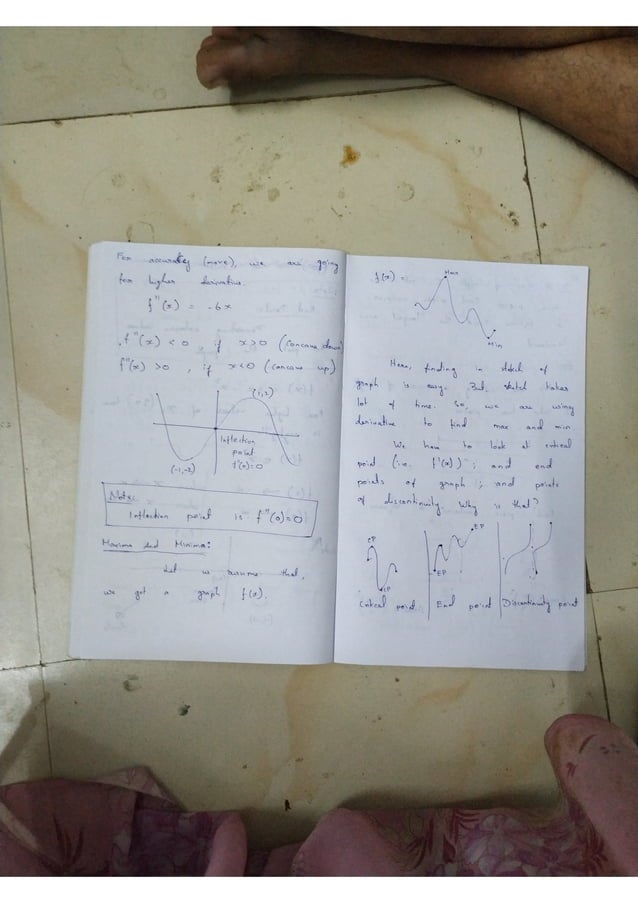 For accurately (more), we are going
for higher derivative.
f''(x) = -6x
f''(x) < 0 if x>0 (concave down)
f''(x) >0 , if x<0 (concave up)
(1,2)
Inflection
point
f''(x)=0
(-1,-2)
Note:
Inflection point is f''(0)=0
Maxima and Minima:
Let us assume that,
we get a graph f(x).
f(x) =
Max
Min
Here, finding in sketch of
graph is easy. But, sketch takes
lot of time. So we are using
derivative to find max and min.
We have to look at critical
point (i.e. f'(x)) ; and end
points of graph ; and points
of discontinuity. Why is that?
CP
CP
EP
EP
Critical point
End point
Discontinuity point